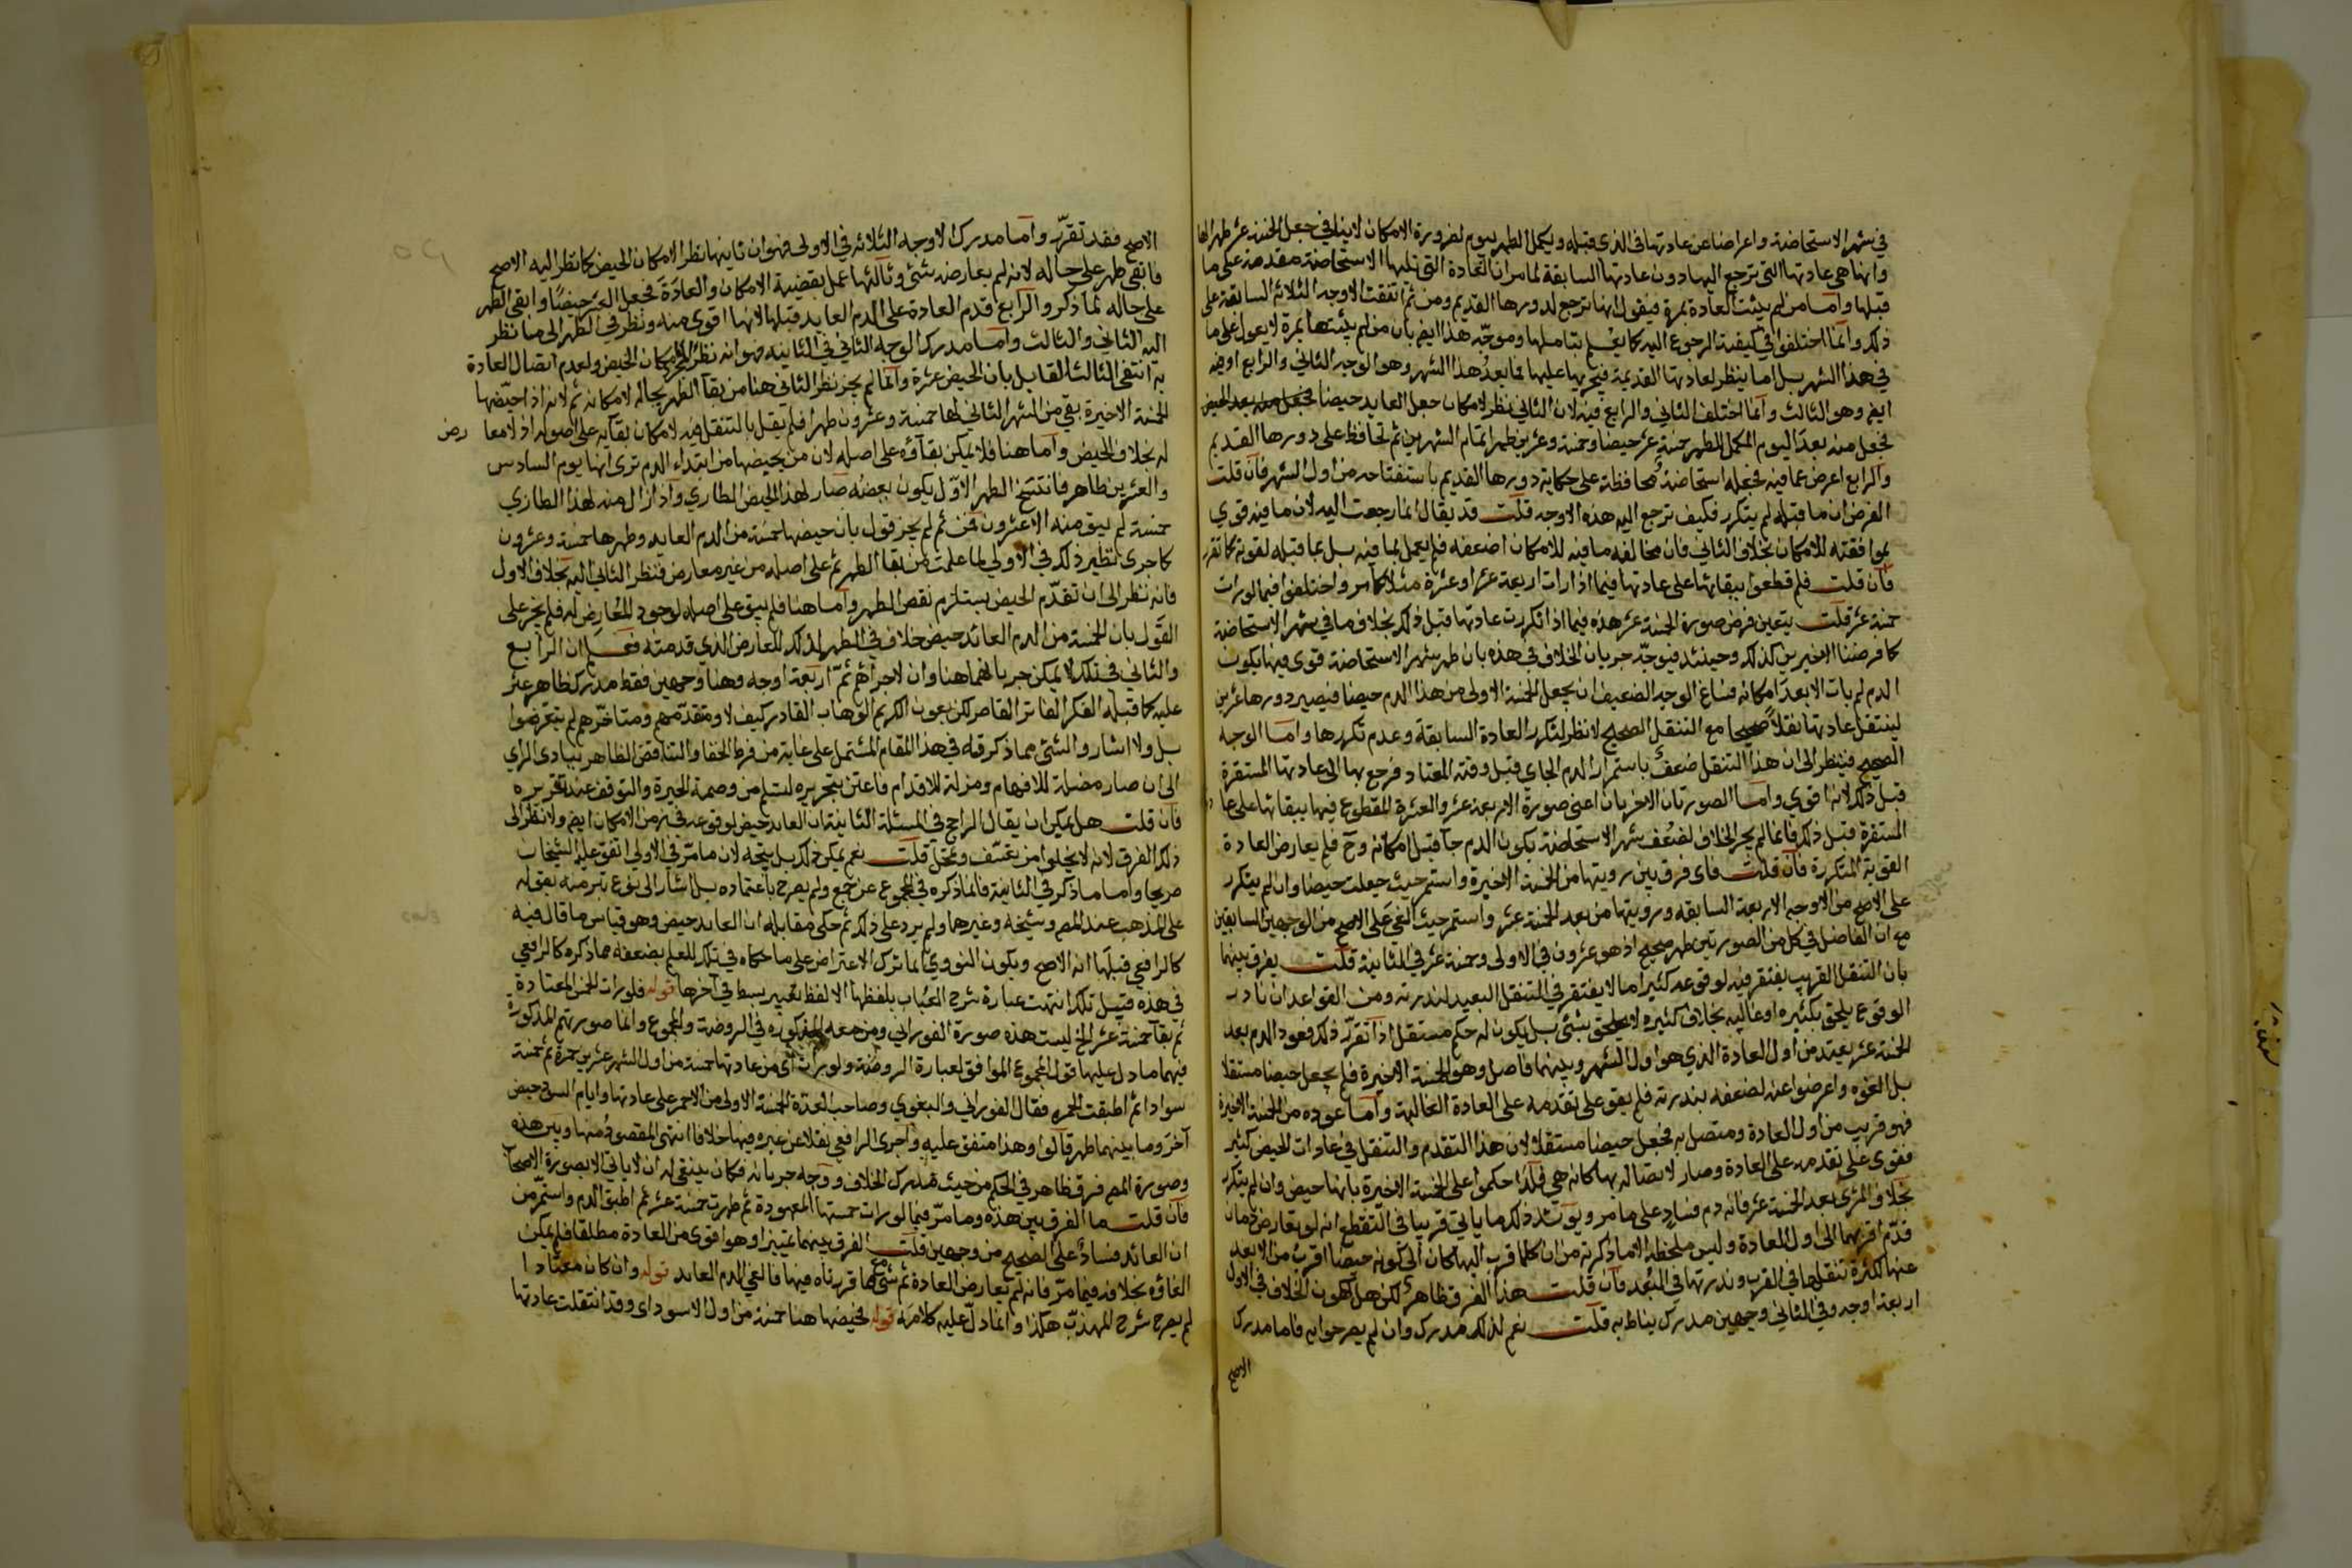 في شهر الاستحاضة واعراضنا عن عادتها في الذي قبله ويكمل الطهر بيوم لضرورة الامكان لاينافي جعل الخمسة عشر طهرا لها
وانها هي عادتها التي ترجع اليها دون عادتها السابقة لما مر ان العادة التي تليها الاستحاضة مقدمة على ما
قبلها واما من لم يثبت العادة بمرة فيقول انها ترجع لدورها القديم ومن ثم اتفقت الاوجه الثلاثة السابقة على
ذلك وانما اختلفوا في كيفية الرجوع اليه كما يعلم بتاملها وموجّه هذا ايضا بان من لم يثبتها بمرة لا يعول على ما
في هذا الشهر بل اما ينظر لعادتها القديمة فيجريها عليها فما بعد هذا الشهر وهو الوجه الثاني والرابع اوفيه
ايضا وهو الثالث وانما اختلف الثاني والرابع فيه لان الثاني نظر لامكان جعل العايد حيضا
فجعل منه بعد اليوم المكمل للطهر خمسة عشر حيضا وخمسة وعشرين طهرا تمام الشهرين ثم تحافظ على دورها القديم
والرابع اعرض عما فيه فجعله استحاضة محافظة على حكاية دورها القديم باستفتاحه من اول الشهر فان قلت
الفرض ان ما قبله لم يتكرر فكيف ترجع اليه هذه الاوجه قلت قد يقال انما رجعت اليه لان ما فيه قوي
بموافقته للامكان بخلاف الثاني فان مخالفة ما فيه للامكان اضعفه فلم يعمل بما فيه بل بما قبله لقوته كما تقرر
فان قلت فلم قطعوا ببقائها على عادتها فيما اذا رات اربعة عشر او عشرة مثلا كما مر واختلفوا فيما لو رات
خمسة عشر قلت يتعين فرض صورة الخمسة عشر هذه فيما اذا تكررت عادتها قبل ذلك بخلاف ما في شهر الاستحاضة
كما فرضنا الاخيرين كذلك وحينئذ فيوجّه جريان الخلاف في هذه بان طهر شهر الاستحاضة قوي فيها بكون
الدم لم يات الا بعد امكانه فساغ الوجه الضعيف ان يجعل الخمسة الاولى من هذا الدم حيضا فيصير دورها عشرين
لينتقل عادتها نقلا صحيحا مع التنقل الصحيح لا نظر لتكرر العادة السابقة وعدم تكررها واما الوجه
الصحيح فينظر الى ان هذا التنقل ضعف باستمرار الدم الجاي قبل وقته المعتاد فرجع بها الى عادتها المستقرة
قبل ذلك لانه اقوى واما الصورتان الاخريان اعني صورة الاربعة عشر والعشرة المقطوع فيها ببقائها على عا
المستقرة قبل ذلك فانما لم يجر الخلاف لضعف شهر الاستحاضة بكون الدم جا قبل امكانه وح فلم يعارض العادة
القوية المتكررة فان قلت فاي فرق بين رويتها من الخمسة الاخيرة واستمر حيث جعلت حيضا وان لم يتكرر
على الاصح من الاوجه الاربعة السابقه ورويتها من بعد الخمسة عشر واستمر حيث الغي على الاصح من الوجهين السابقين
مع ان الفاصل في كل من الصورتين طهر صحيح اذ هو عشرون في الاولى وخمسة عشر في الثانية قلت يفرق بينهما
بان التنقل القريب يغتفر فيه لوقوعه كثيرا ما لا يغتفر في التنقل البعيد لندرته ومن القواعد ان نادر
الوقوع يلحق بكثيره او غالبه بخلاف كثيره لا يلحق بشئ بل يكون له حكم مستقل اذا تقرر ذلك فعود الدم بعد
الخمسة عشر يعتد من اول العادة الذي هو اول الشهر وبينهما فاصل وهو الخمسة الاخيرة فلم يجعل حيضا مستقلا
بل الغوه واعرضوا عنه لضعفه بندرته فلم يقو على تقدمه على العادة الغالبة واما عوده من الخمسة الاخيرة
فهو قريب من اول العادة ومتصل به فجعل حيضا مستقلا لان هذا التقدم والتنقل في عادات الحيض كثير
فقوى على تقدمه على العادة وصار لاتصاله بها كانه هي فلذا حكموا على الخمسة الاخيرة بانها حيض وان لم يتكرر
بخلاف المرئ بعد الخمسة عشر فانه دم فساد على ما مر ويؤيد ذلك ما ياتي قريبا في التقطع انه لو تعارض دمان
قدّم اقربهما الى اول العادة وليس ملحظه الا ما ذكرته من ان كلما قرب اليها كان الى كونه حيضا اقرب من الابعد
عنها لكثرة تنقلها في القرب وندرتها في البعد فان قلت هذا الفرق ظاهر لكن هل لكون الخلاف في الاول
اربعة اوجه وفي الثاني وجهين مدرك يناط به قلت نعم لذلك مدرك وان لم يصرحوا به فاما مدرك
الاصح
الاصح فقد تقرّر واما مدرك الاوجه الثلاثة في الاولى فهو ان ثانيها نظر الامكان الحيض كما نظر اليه الاصح
فابقى طهر على حاله لانه لم يعارضه شئ وثالثها عمل بقضية الامكان والعادة فجعل حيضا وابقى الطهر
على حاله لما ذكر والرابع قدم العادة على الدم العايد قبلها لانها اقوى منه ونظر في الطهر الى ما نظر
اليه الثاني والثالث واما مدرك الوجه الثاني في الثانية فهو انه نظر لامكان الحيض ولعدم اتصال العادة
به انتفى الثالث القايل بان الحيض عشرة وانما لم يجز نظر الثاني هنا من بقا الطهر بحاله لامكانه ثم لانه اذا حيّضها
الخمسة الاخيرة بقي من الشهر الثاني لها خمسة وعشرون طهرا فلم يقل بالتنقل فيه لامكان بقائه على اصوله اذ لا معا رض
له بخلاف الحيض واما هنا فلا يمكن بقاؤه على اصله لان من يحيضها من ابتداء الدم ترى انها يوم السادس
والعشرين طاهر فانتسخ الطهر الاول بكون بعضه صار لهذا الحيض الطاري واذا زال منه لهذا الطاري
خمسة لم يبق منه الا عشرون فمن ثم لم يجز قول بان حيضها خمسة من الدم العايد وطهرها خمسة وعشرون
كما جرى نظير ذلك في الاولى لما علمت من بقا الطهر ثم على اصله من غير معارض فنظر الثاني اليه بخلاف الاول
فانه نظر الى ان تقدّم الحيض يستلزم نقص الطهر واما هنا فلم يبق على اصله لوجود المعارض له فلم يجز على
القول بان الخمسة من الدم العائد حيض خلاف في الطهر لذلك للمعارض الذي قدمته فعلم ان الرابع
والثاني في تلك لا يمكن جريانهما هنا وان لاجرائهم ثم اربعة اوجه وهنا وجهين فقط مدرك ظاهر عثر
عليه كما قبله الفكر الفاتر القاصر لكن بعون الكريم الوهاب القادر كيف لا ومتقدّمهم ومتاخرهم لم يتعرضوا
بل ولا اشاروا لشئ مما ذكرته في هذا المقام المشتمل على غاية من فرط الخفا والتناقض الظاهر ببادى الراي
الى ان صار مضلة للافهام ومزلة للاقدام فاعتن بتحريره لتسلم من وصمة الحيرة والتوقف عند تقريره
فان قلت هل يمكن ان يقال الراجح في المسئلة الثانية ان العايد حيض لوقوعه في زمن الامكان ايضا ولا نظر الى
ذلك الفرق لانه لا يخلوا من تعسّف وتمحّل قلت نعم يمكن ذلك بل يتجه لان ما مرّ في الاولى اتفق عليه الشيخان
صريحا واما ما ذكر في الثانية فانما ذكره في المجموع عن جمع ولم يصرح باعتماده بل اشار الى نوع تبر منه بقوله
على المذهب عند المص وشيخه وغيرهما ولم يرد على ذلك ثم حكى مقابله ان العايد حيض وهو قياس ما قال فيه
كالرافعي قبلها انه الاصح ويكون النووي انما ترك الاعتراض على ما حكاه في تلك للعلم بضعفه مما ذكره كالرافعي
في هذه قبيل تلك انتهت عبارة شرح العباب بلفظها الا لفظ تغيير يسير في آخرها قوله فلو رات الخمس المعتادة
ثم بقا خمسة عشر الخ ليست هذه صورة الفوراني ومن معه المذكوره في الروضة والمجموع وانما صورتهم المذكورة
فيهما ما دل عليها قول المجموع الموافق لعبارة الروضة ولو رات اي من عادتها خمسة من اول الشهر عشرين حمرة ثم خمسة
سوادا ثم اطبقت الحمرة فقال الفوراني والبغوي وصاحب العدّة الخمسة الاولى من الاحمر على عادتها وايام السواد حيض
آخر وما بينهما طهر قالوا وهذا متفق عليه واجرى الرافعي نقلا عن غيره فيها خلافا انتهى المقصود منها وبين هذه
وصورة المص فرق ظاهر في الحكم من حيث مدرك الخلاف ووجه جريانه فكان ينبغي له ان لا ياتي الا بصورة الاصحاب
فان قلت ما الفرق بين هذه وما مرّ فيما لو رات خمستها المعهودة ثم طهرت خمسة عشر ثم اطبق الدم واستمر من
ان العائد فساد على الصحيح من وجهين قلت الفرق بينهما تمييزا وهو اقوى من العادة مطلقا فلم يمكن
الغاؤه بخلافه فيما مرّ فانه لم يعارض العادة ثم شئ كما قررناه فيها فالغي الدم العايد قوله وان كان معتادا
لم يصرح شرح المهذب هكذا وانما دلّ عليه كلامه قوله فحيضها هنا خمسة من اول الاسود اي وقد انتقلت عادتها